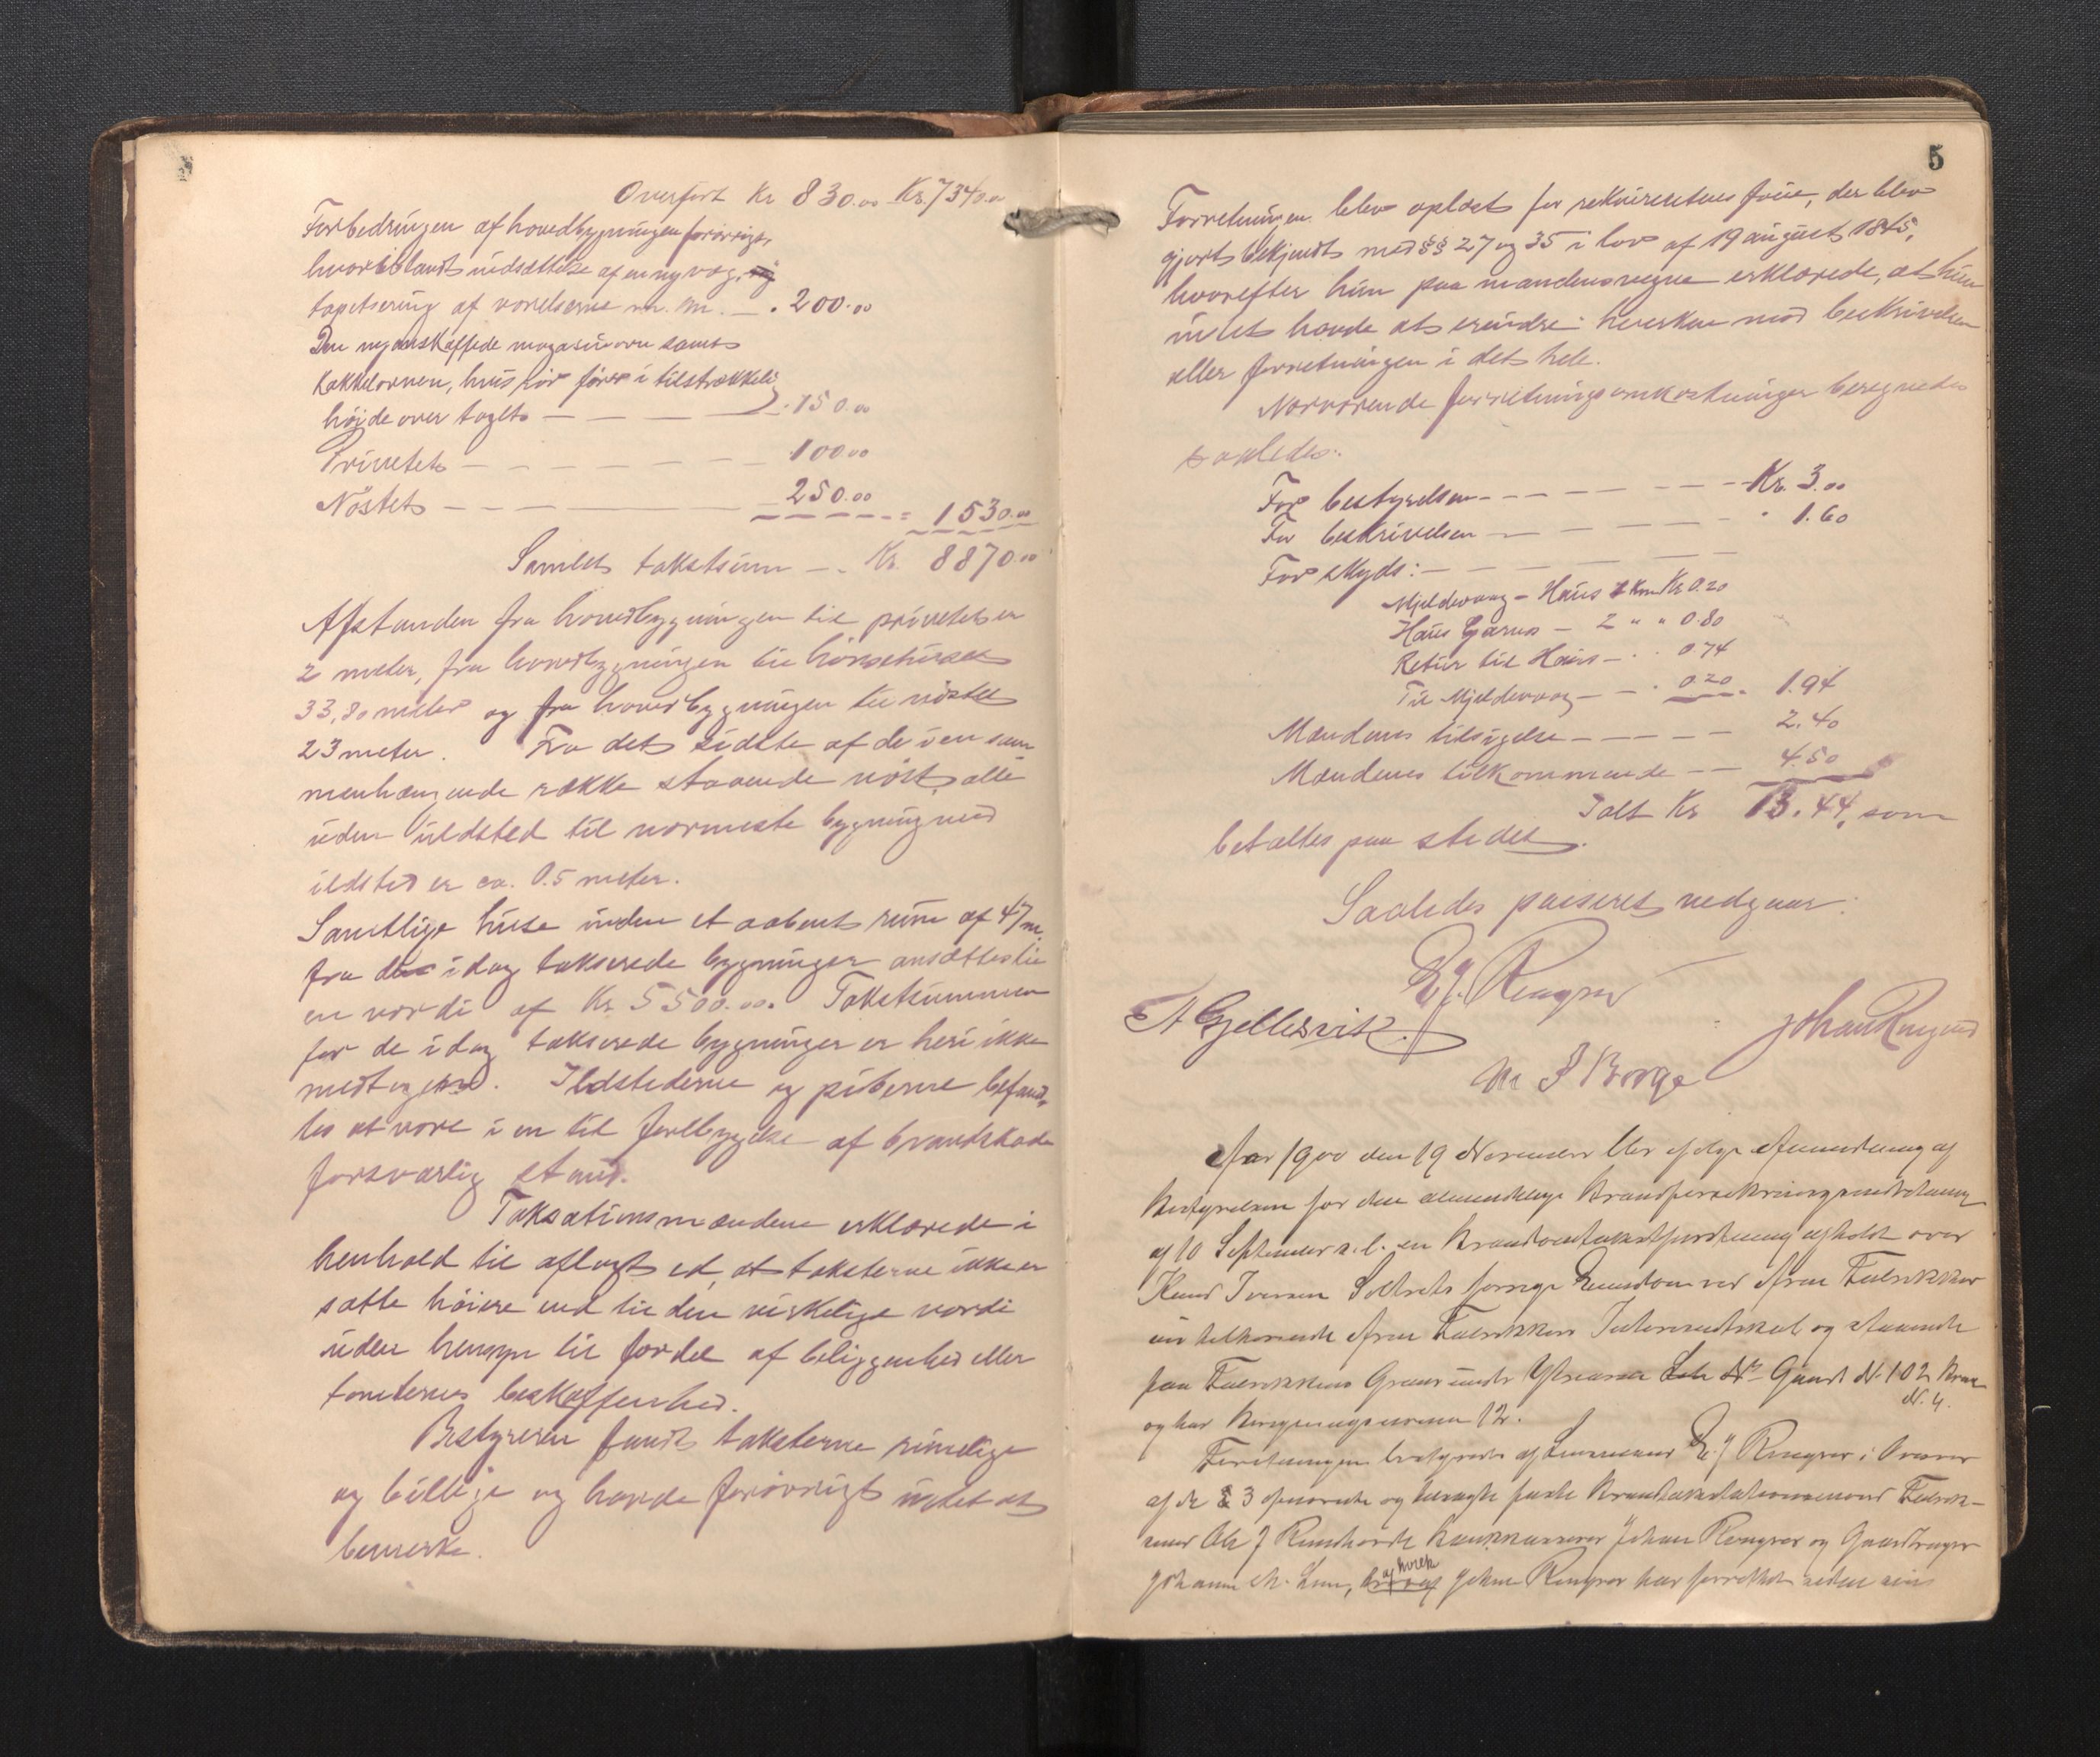 Overført Kr 830.00 Kr. 7340.00
Forbedringen af hovedbygningen forøvrigt,
hvoriblandt indsættelse af en ny væg, og
tapetsering af værelserne m. m. — . 200.00
Den nyanskaffede magasinovn samt
kakkelovnen, hvis rör fører i tilstrækkelig
höide over taget — — — . 150.00
Privetet — — — — — 100.00
Nöstet — — — — 250.00 = 1530.00
Samlet takstsum — Kr. 8870.00
Afstanden fra hovedbygningen til privetet er
2 meter, fra hovedbygningen til hönsehuset
33,80 meter og fra hovedbygningen til nöstet
23 meter. Fra det sidste af de i en sam
menhængende række staaende nöst, alle
uden ildsted til nærmeste bygning med
ildsted er ca. 0.5 meter.
Samtlige huse inden et aabent rum af 47 m.
fra de idag takserede bygninger ansættes til
en værdi af Kr. 5500.00. Takstsummen
for de idag takserede bygninger er heri ikke
medtagen. Ildstederne og piberne befand-
tes at være i en til forebyggelse af brandskade
forsvarlig stand.
Taksationsmændene erklærede i
henhold til aflagt ed, at taksterne ikke er
satte höiere end til den virkelige værdi
uden hensyn til fordel af beliggenhed eller
tomternes beskaffenhed.
Bestyreren fandt taksterne rimelige
og billige og havde forøvrigt intet at
bemerke.
5
Forretningen blev oplæst for rekvirentens frue, der blev
gjort bekjendt med §§ 27 og 35 i lov af 19 august 1845,
hvorefter hun paa mandens vegne erklærede, at hun
intet havde at erindre hverken mod beskrivelsen
eller forretningen i det hele.
Nærværende forretningsomkostninger beregnedes
saaledes:
For bestyrelsen — — — — Kr. 3.00
For beskrivelsen — — — — " 1.60
For skyds: — — — — —
Mjeldevaag – Haus 1 Km Kr 0.20
Haus Gjærnes – 2 " " 0.80
Retur til Haus – . . 0.74
Til Mjeldevaag – – . 0.20 . 1.94
Mændenes tilsigelse — — — — 2.40
Mændenes tilkommende — — 4.50
Ialt Kr 13.44, som
betaltes paa stedet.
Saaledes passeret vedgaar:
A Gjellesvik. Johan Rengaard
M J Borge
Aar 1900 den 19 November blev ifølge Anmodning af
Bestyrelsen for den almindelige Brandforsikringsindretning
af 10 September s. l. en Brandomtaxtforretning afholdt over
Knud Iversen forrige Eiendom ved Arne Fabrikker
nu tilhørende Arne Fabrikkers Interessentskab og staaende
paa Fabrikkens Grund under Ytrearne Gaards N. 102 Brug
N. 4.
og har Bygningsnummer 12.
Forretningen bestyredes af Lensmand i Overvær
af de 3 opnævnte og faste Brandtaxtationsmænd Fabrik-
Ole J Bankkasserer Johan og Gaardbruger
Johannes M. af hvilke Johan har forrettet siden sin